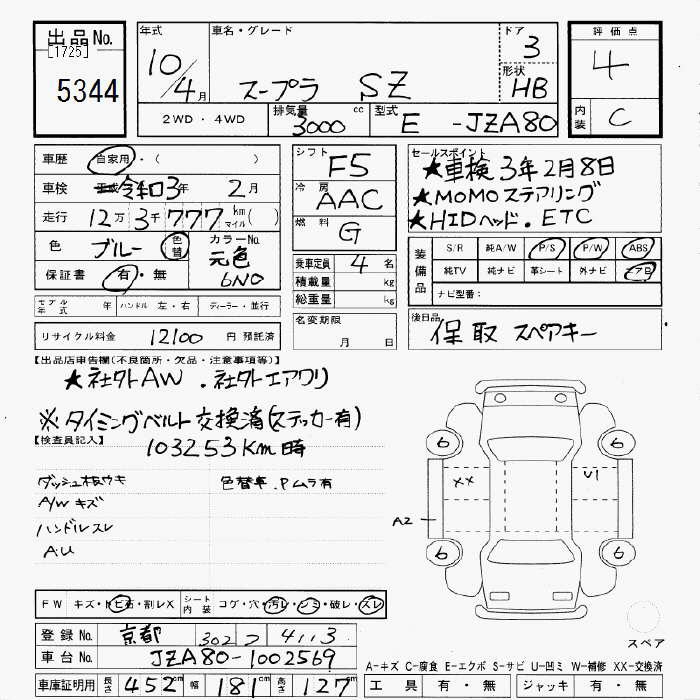 出品No.
[1725]
5344
年式
10/4月
車名・グレード
スープラ SZ
ドア
3
形状
HB
評価点
4
内装
C
2WD・4WD
排気量
3000 cc
型式
E-JZA80
車歴 自家用・( )
車検 平成 令和3年 2月
走行 12万3千777km マイル( )
色 ブルー 色替
カラーNo.
元色
6N0
保証書 有・無
シフト
F5
冷房
AAC
燃料
G
乗車定員 4名
積載量 kg
総重量 kg
名変期限
月 日
セールスポイント
★車検3年2月8日
★MOMOステアリング
★HIDヘッド.ETC
装備品
S/R 純A/W P/S P/W ABS
純TV 純ナビ 革シート 外ナビ エアB
ナビ型番:
モデル年式 年 ハンドル 左・右 ディーラー・並行
リサイクル料金 12100円 預託済
後日品
保取 スペアキー
【出品店申告欄(不良箇所・欠品・注意事項等)】
★社外AW.社外エアクリ
※タイミングベルト交換済(ステッカー有)
【検査員記入】
103253Km時
ダッシュ板ウキ 色替車.Pムラ有
A/Wキズ
ハンドルスレ
A.U
6 6
XX U1
A2
6 6
FW キズ・トビ石・割レX
シート内装 コゲ・穴・汚レ・シミ・破レ・スレ
登録No. 京都 302 つ 4113
車台No. JZA80-1002569
車庫証明用 長さ 452cm 幅 181cm 高さ 127cm
スペア
A-キズ C-腐食 E-エクボ S-サビ U-凹ミ W-補修 XX-交換済
工具 有・無 ジャッキ 有・無